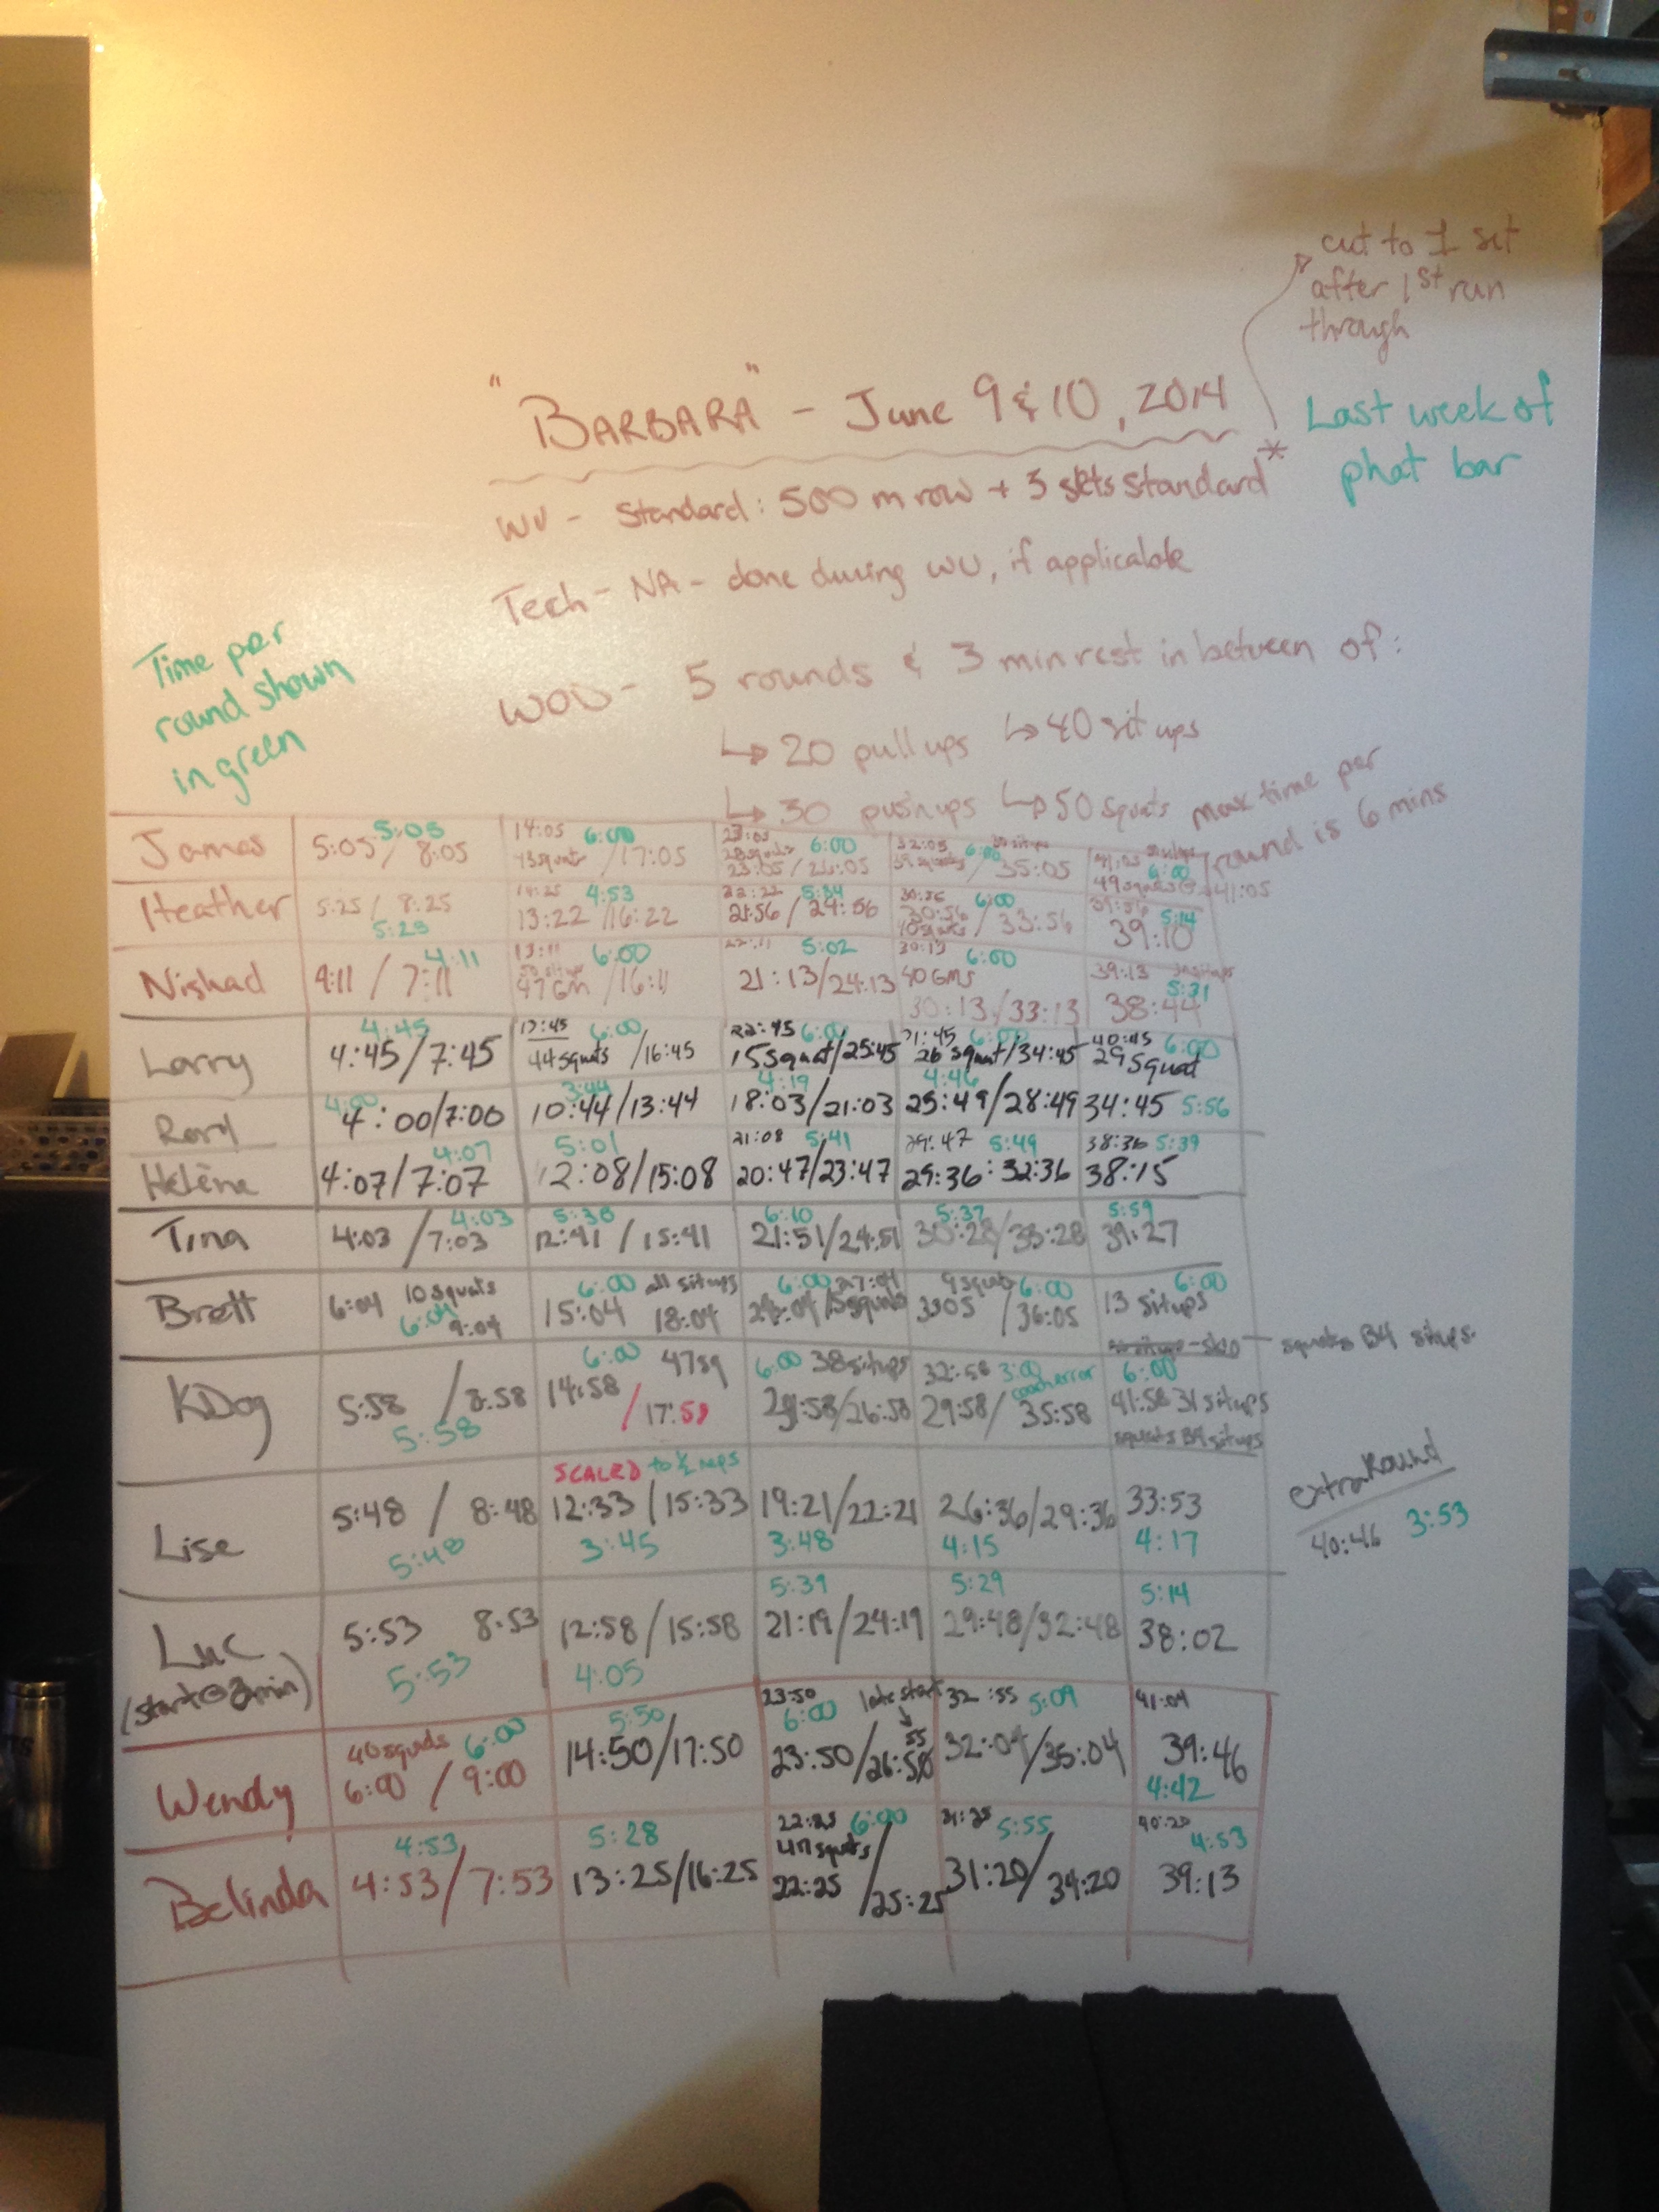 cut to 1 set
after 1st run
through
"BARBARA" - June 9 & 10, 2014
Last week of
phat bar
WU - Standard: 500 m row + 3 sets standard*
Tech - NA - done during WU, if applicable
Time per
round shown
in green
WOD - 5 rounds & 3 min rest in between of:
↳ 20 pull ups ↳ 40 sit ups
↳ 30 pushups ↳ 50 squats
max time per
round is 6 mins
James 5:05 / 8:05 5:05
14:05 6:00
43 squats / 17:05
23:05 6:00
28 squats
23:05 / 26:05
32:05 6:00
39 squats / 35:05
6:00
49 squats 41:05
Heather 5:25 / 8:25
5:25
14:25 4:53
13:22 / 16:22
22:22 5:34
21:56 / 24:56
30:56 6:00
30:56 / 33:56
10 squats
39:56 5:14
39:10
Nishad 4:11 / 7:11 4:11
13:11 6:00
47 GM / 16:11
22:11 5:02
21:13 / 24:13
30:13 6:00
50 GMs
30:13 / 33:13
39:13
5:31
38:44
Larry 4:45
4:45 / 7:45
13:45 6:00
44 squats / 16:45
22:45 6:00
15 squat / 25:45
31:45 6:00
26 squat / 34:45
40:45 6:00
29 squat
4:00
4:00 / 7:00
3:44
10:44 / 13:44
4:19
18:03 / 21:03
4:46
25:49 / 28:49
34:45 5:56
Helène 4:07
4:07 / 7:07
5:01
12:08 / 15:08
21:08 5:41
20:47 / 23:47
29:47 5:49
29:36 : 32:36
38:36 5:39
38:15
Tina 4:03
4:03 / 7:03
5:38
12:41 / 15:41
6:10
21:51 / 24:51
5:37
30:28 / 33:28
5:59
39:27
Brett 6:04 10 squats
6:04 9:04
6:00 all situps
15:04 18:04
6:00 27:04
24:04 / 15 squats
9 squats 6:00
3305 / 36:05
6:00
13 situps
squats B4 situps
KDog 5:58 / 8:58
5:58
6:00 47 sq
14:58 / 17:58
6:00 38 situps
23:58 / 26:58
32:58 3:00
coach error
29:58 / 35:58
6:00
41:58 31 situps
squats B4 situps
Lise 5:48 / 8:48
5:48
SCALED to ½ reps
12:33 / 15:33
3:45
19:21 / 22:21
3:48
26:36 / 29:36
4:15
33:53
4:17
extra Round
40:46 3:53
Luc
(start @ 2min)
5:53 8:53
5:53
12:58 / 15:58
4:05
5:39
21:19 / 24:19
5:29
29:48 / 32:48
5:14
38:02
Wendy 40 squats 6:00
6:00 / 9:00
5:50
14:50 / 17:50
23:50
6:00 late start
55
23:50 / 26:50
32:55 5:09
32:04 / 35:04
41:04
39:46
4:42
Belinda 4:53
4:53 / 7:53
5:28
13:25 / 16:25
22:25 6:00
47 squats
22:25 / 25:25
31:25 5:55
31:20 / 34:20
40:20 4:53
39:13